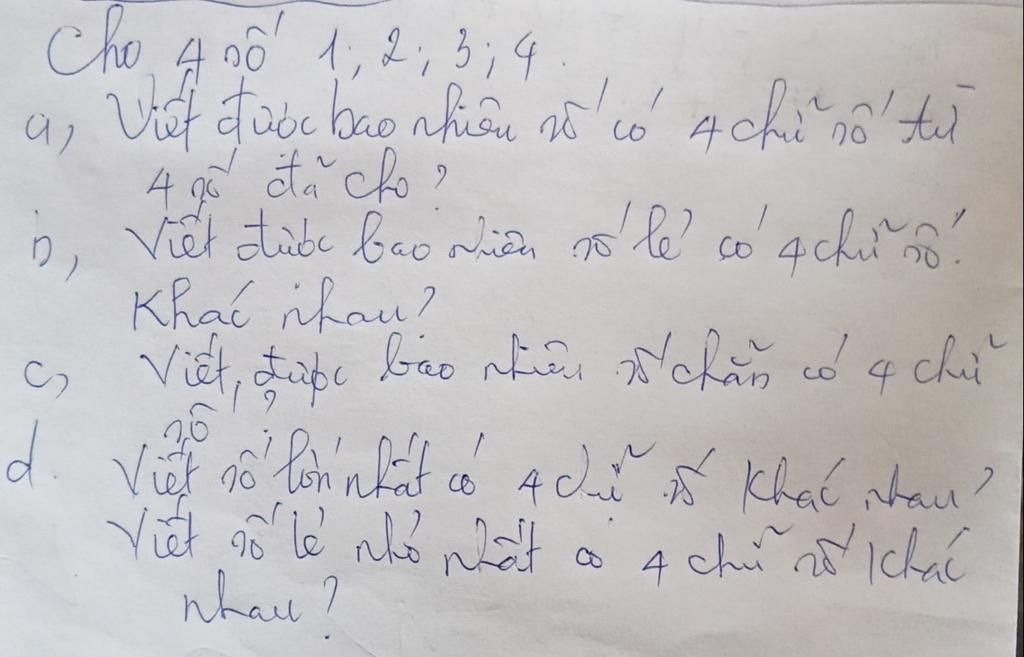 Cho 4 số 1; 2; 3; 4.
a, Viết được bao nhiêu số có 4 chữ số từ
4 số đã cho?
b, Viết được bao nhiêu số lẻ có 4 chữ số.
Khác nhau?
c, Viết được bao nhiêu số chẵn có 4 chữ
số?
d. Viết số lớn nhất có 4 chữ số khác nhau?
Viết số lẻ nhỏ nhất có 4 chữ số khác
nhau?